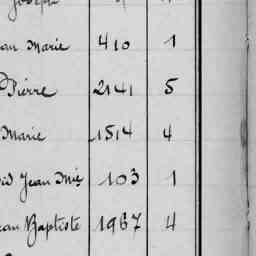 Joseph
an Marie 410 1
Pierre 2141 5
Marie 1514 4
id Jean Mie 103 1
ean Baptiste 1967 4